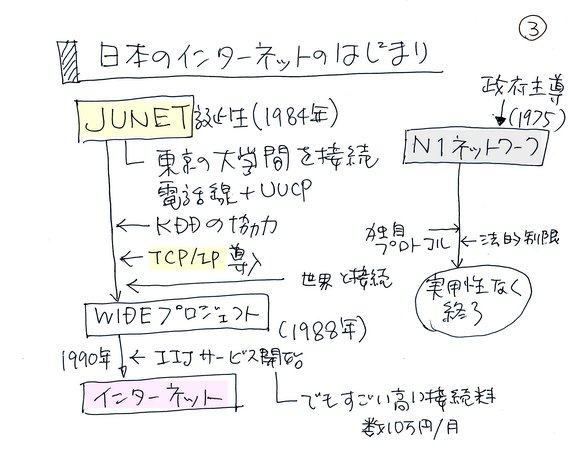 ③
日本のインターネットのはじまり
JUNET誕生(1984年)
東京の大学間を接続
電話線+UUCP
←KDDの協力
←TCP/IP 導入
世界と接続
WIDEプロジェクト
(1988年)
1990年 ←IIJサービス開始
インターネット
でもすごい高い接続料
数10万円/月
政府主導
(1975)
N1ネットワーク
独自
プロトコル
←法的制限
実用性なく
終了